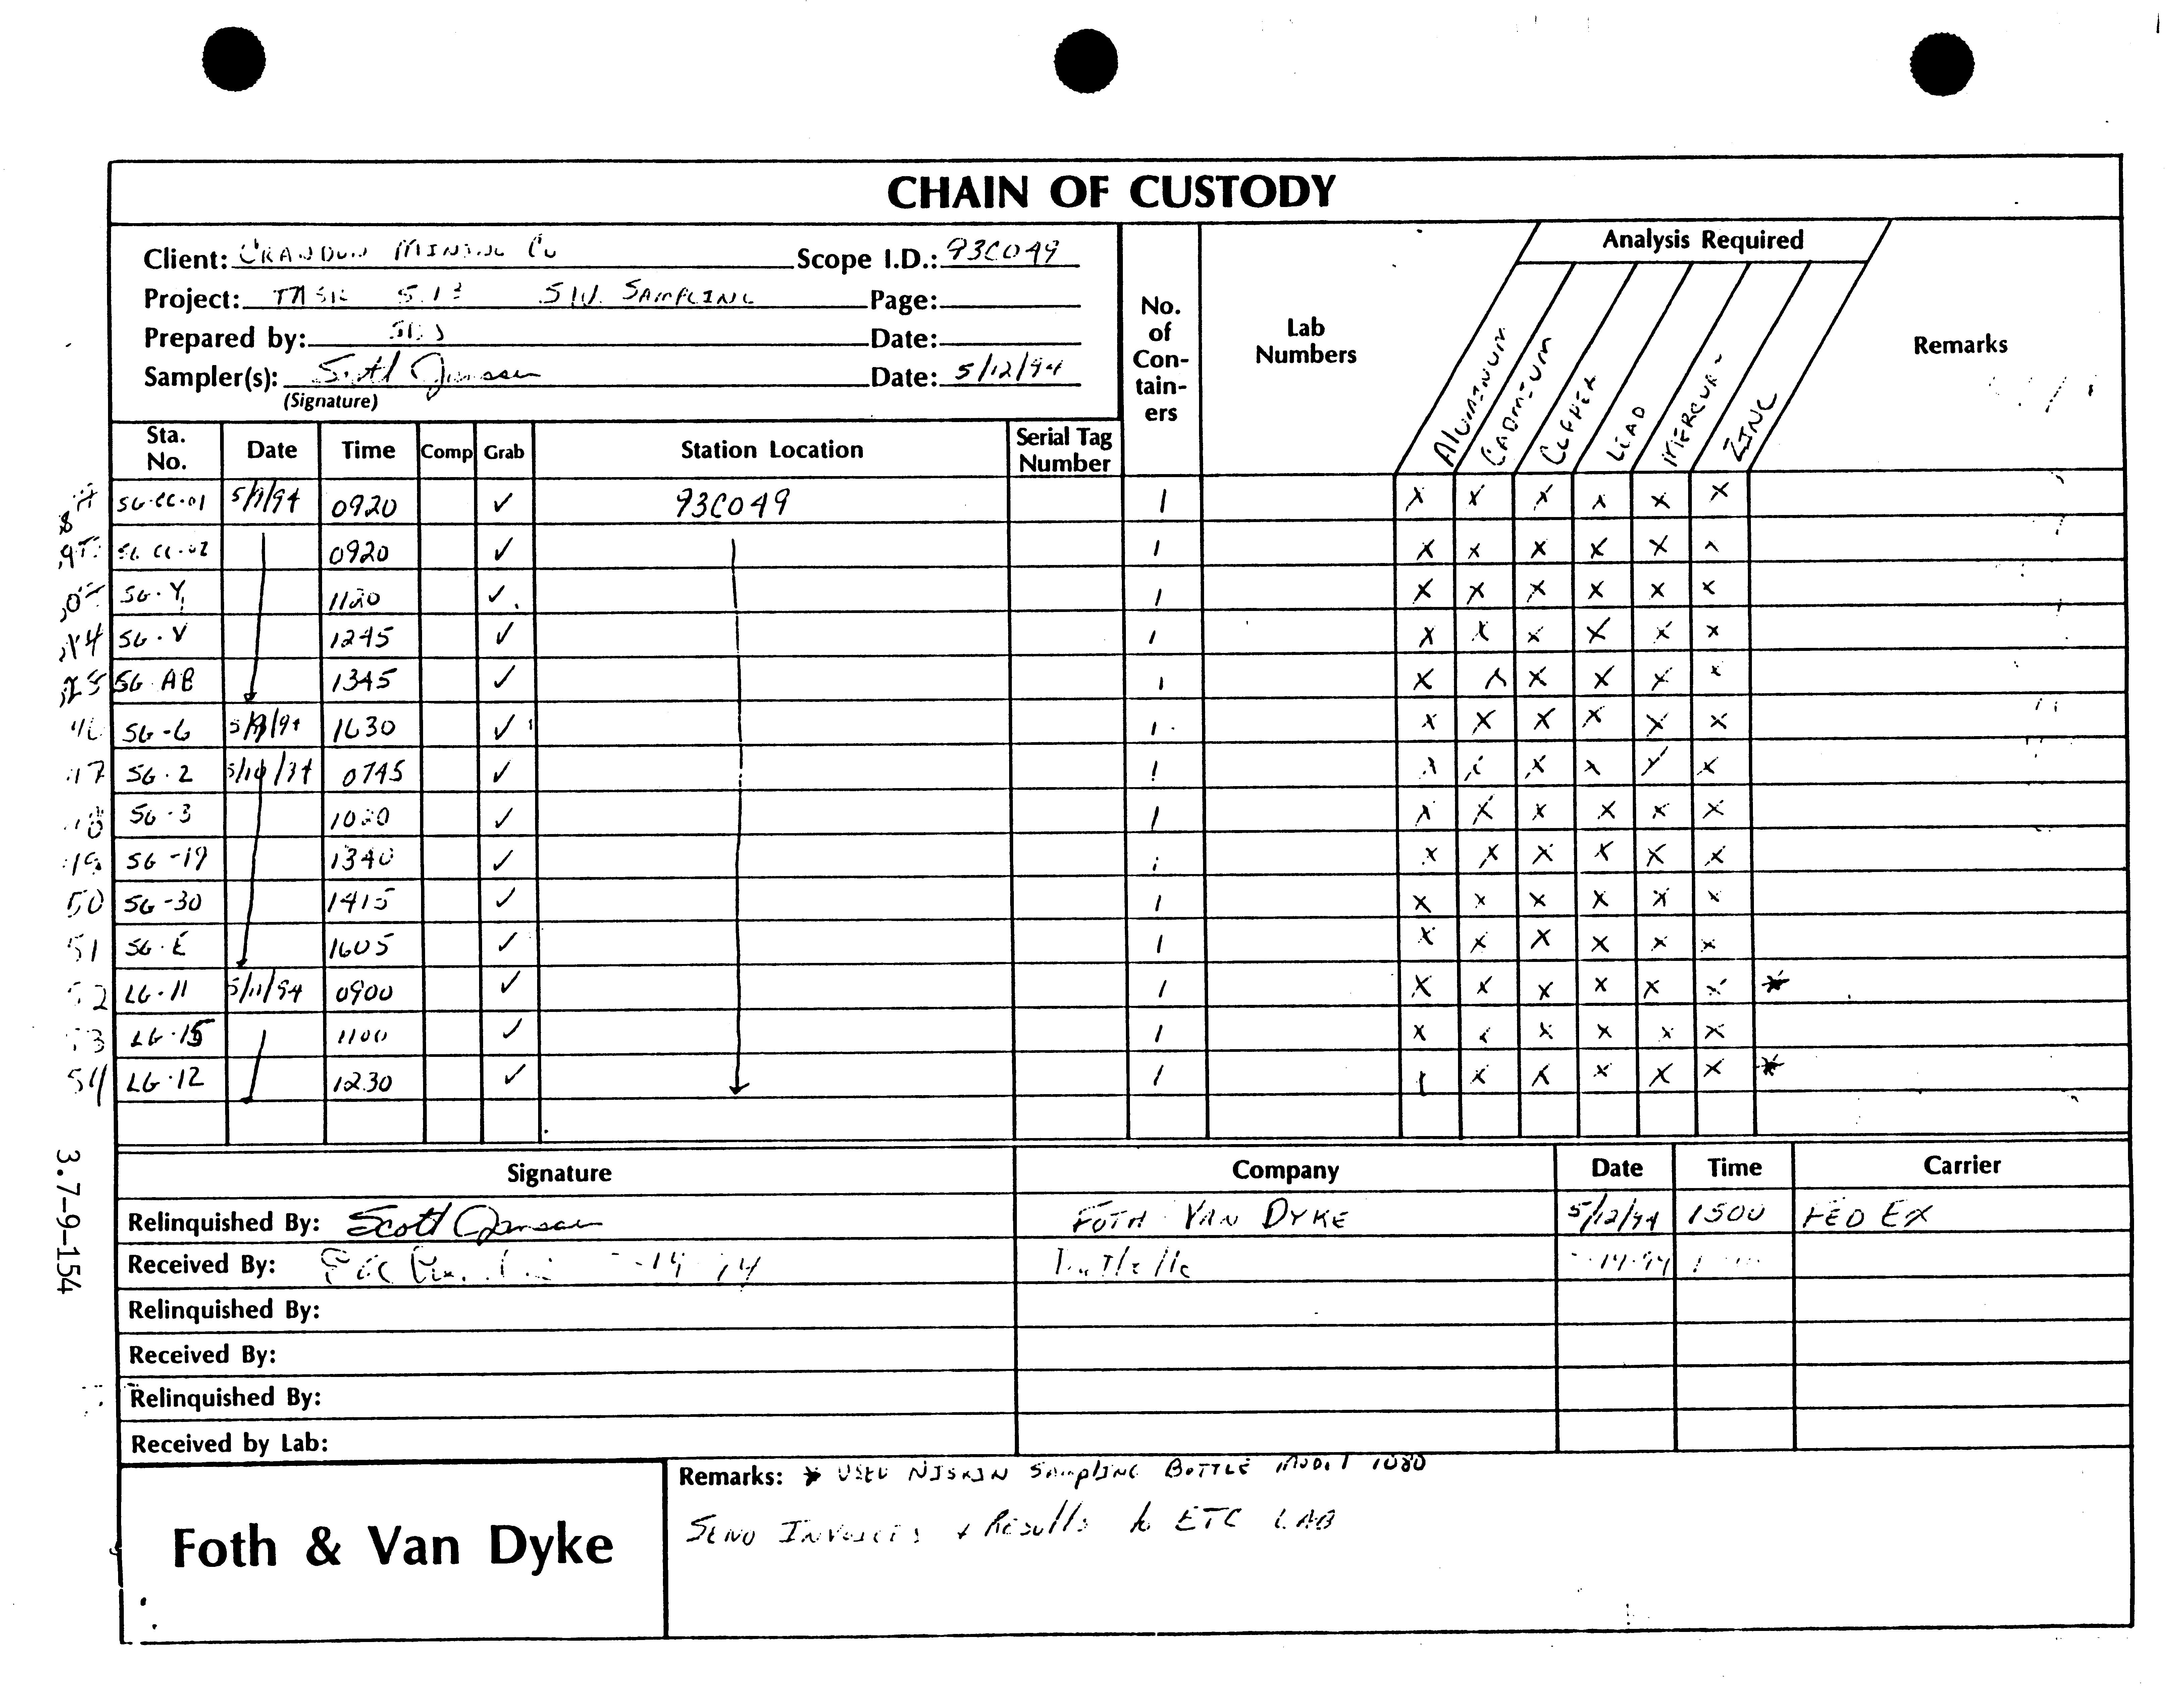 CHAIN OF CUSTODY
Client: CRANDON MINING CO Scope I.D.: 93C049
Project: TASK 5.13 S.W. SAMPLING Page:
Prepared by: Date:
Sampler(s): Scott Jansen Date: 5/12/94
(Signature)
No. of Con-tain-ers
Lab Numbers
Analysis Required
ALUMINUM CADMIUM COPPER LEAD MERCURY ZINC
Remarks
Sta. No. Date Time Comp Grab Station Location Serial Tag Number
SG-CC-01 5/9/94 0920 ✓ 93C049 1 X X X X X X
SG CC-02 0920 ✓ 1 X X X X X X
SG-Y 1120 ✓ 1 X X X X X X
SG-V 1245 ✓ 1 X X X X X X
SG AB 1345 ✓ 1 X X X X X X
SG-6 5/9/94 1630 ✓ 1 X X X X X X
47 SG-2 5/10/94 0745 ✓ 1 X X X X X X
SG-3 1020 ✓ 1 X X X X X X
SG-19 1340 ✓ 1 X X X X X X
50 SG-30 1415 ✓ 1 X X X X X X
51 SG-E 1605 ✓ 1 X X X X X X
52 LG-11 5/11/94 0900 ✓ 1 X X X X X X *
53 LG-15 1100 ✓ 1 X X X X X X
54 LG-12 1230 ✓ 1 X X X X X X *
Signature Company Date Time Carrier
Relinquished By: Scott Jansen FOTH VAN DYKE 5/12/94 1500 FED EX
Received By:
Relinquished By:
Received By:
Relinquished By:
Received by Lab:
Remarks: * USED NISKIN SAMPLING BOTTLE MODEL 1080
SEND INVOICES + RESULTS to ETC LAB
Foth & Van Dyke
3.7-9-154